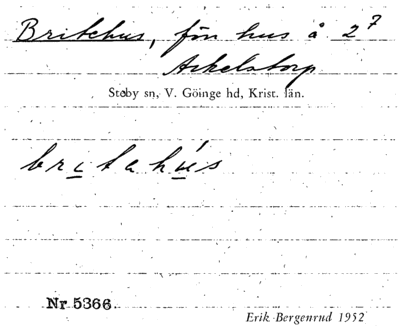 Britchus, fön hus å 2⁷
Arkelstorp
Stoby sn, V. Göinge hd, Krist. län.
britahús
Nr 5366.
Erik Bergenrud 1952